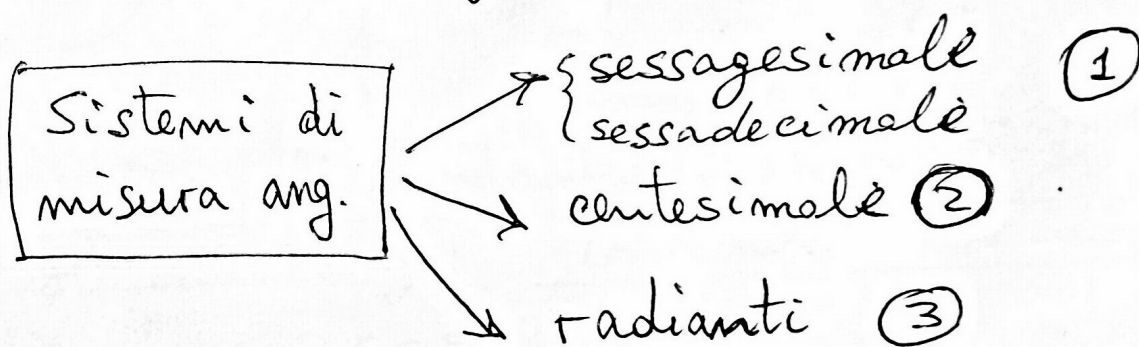 Sistemi di
misura ang.
sessagesimale
sessadecimale
1
centesimale 2
radianti 3